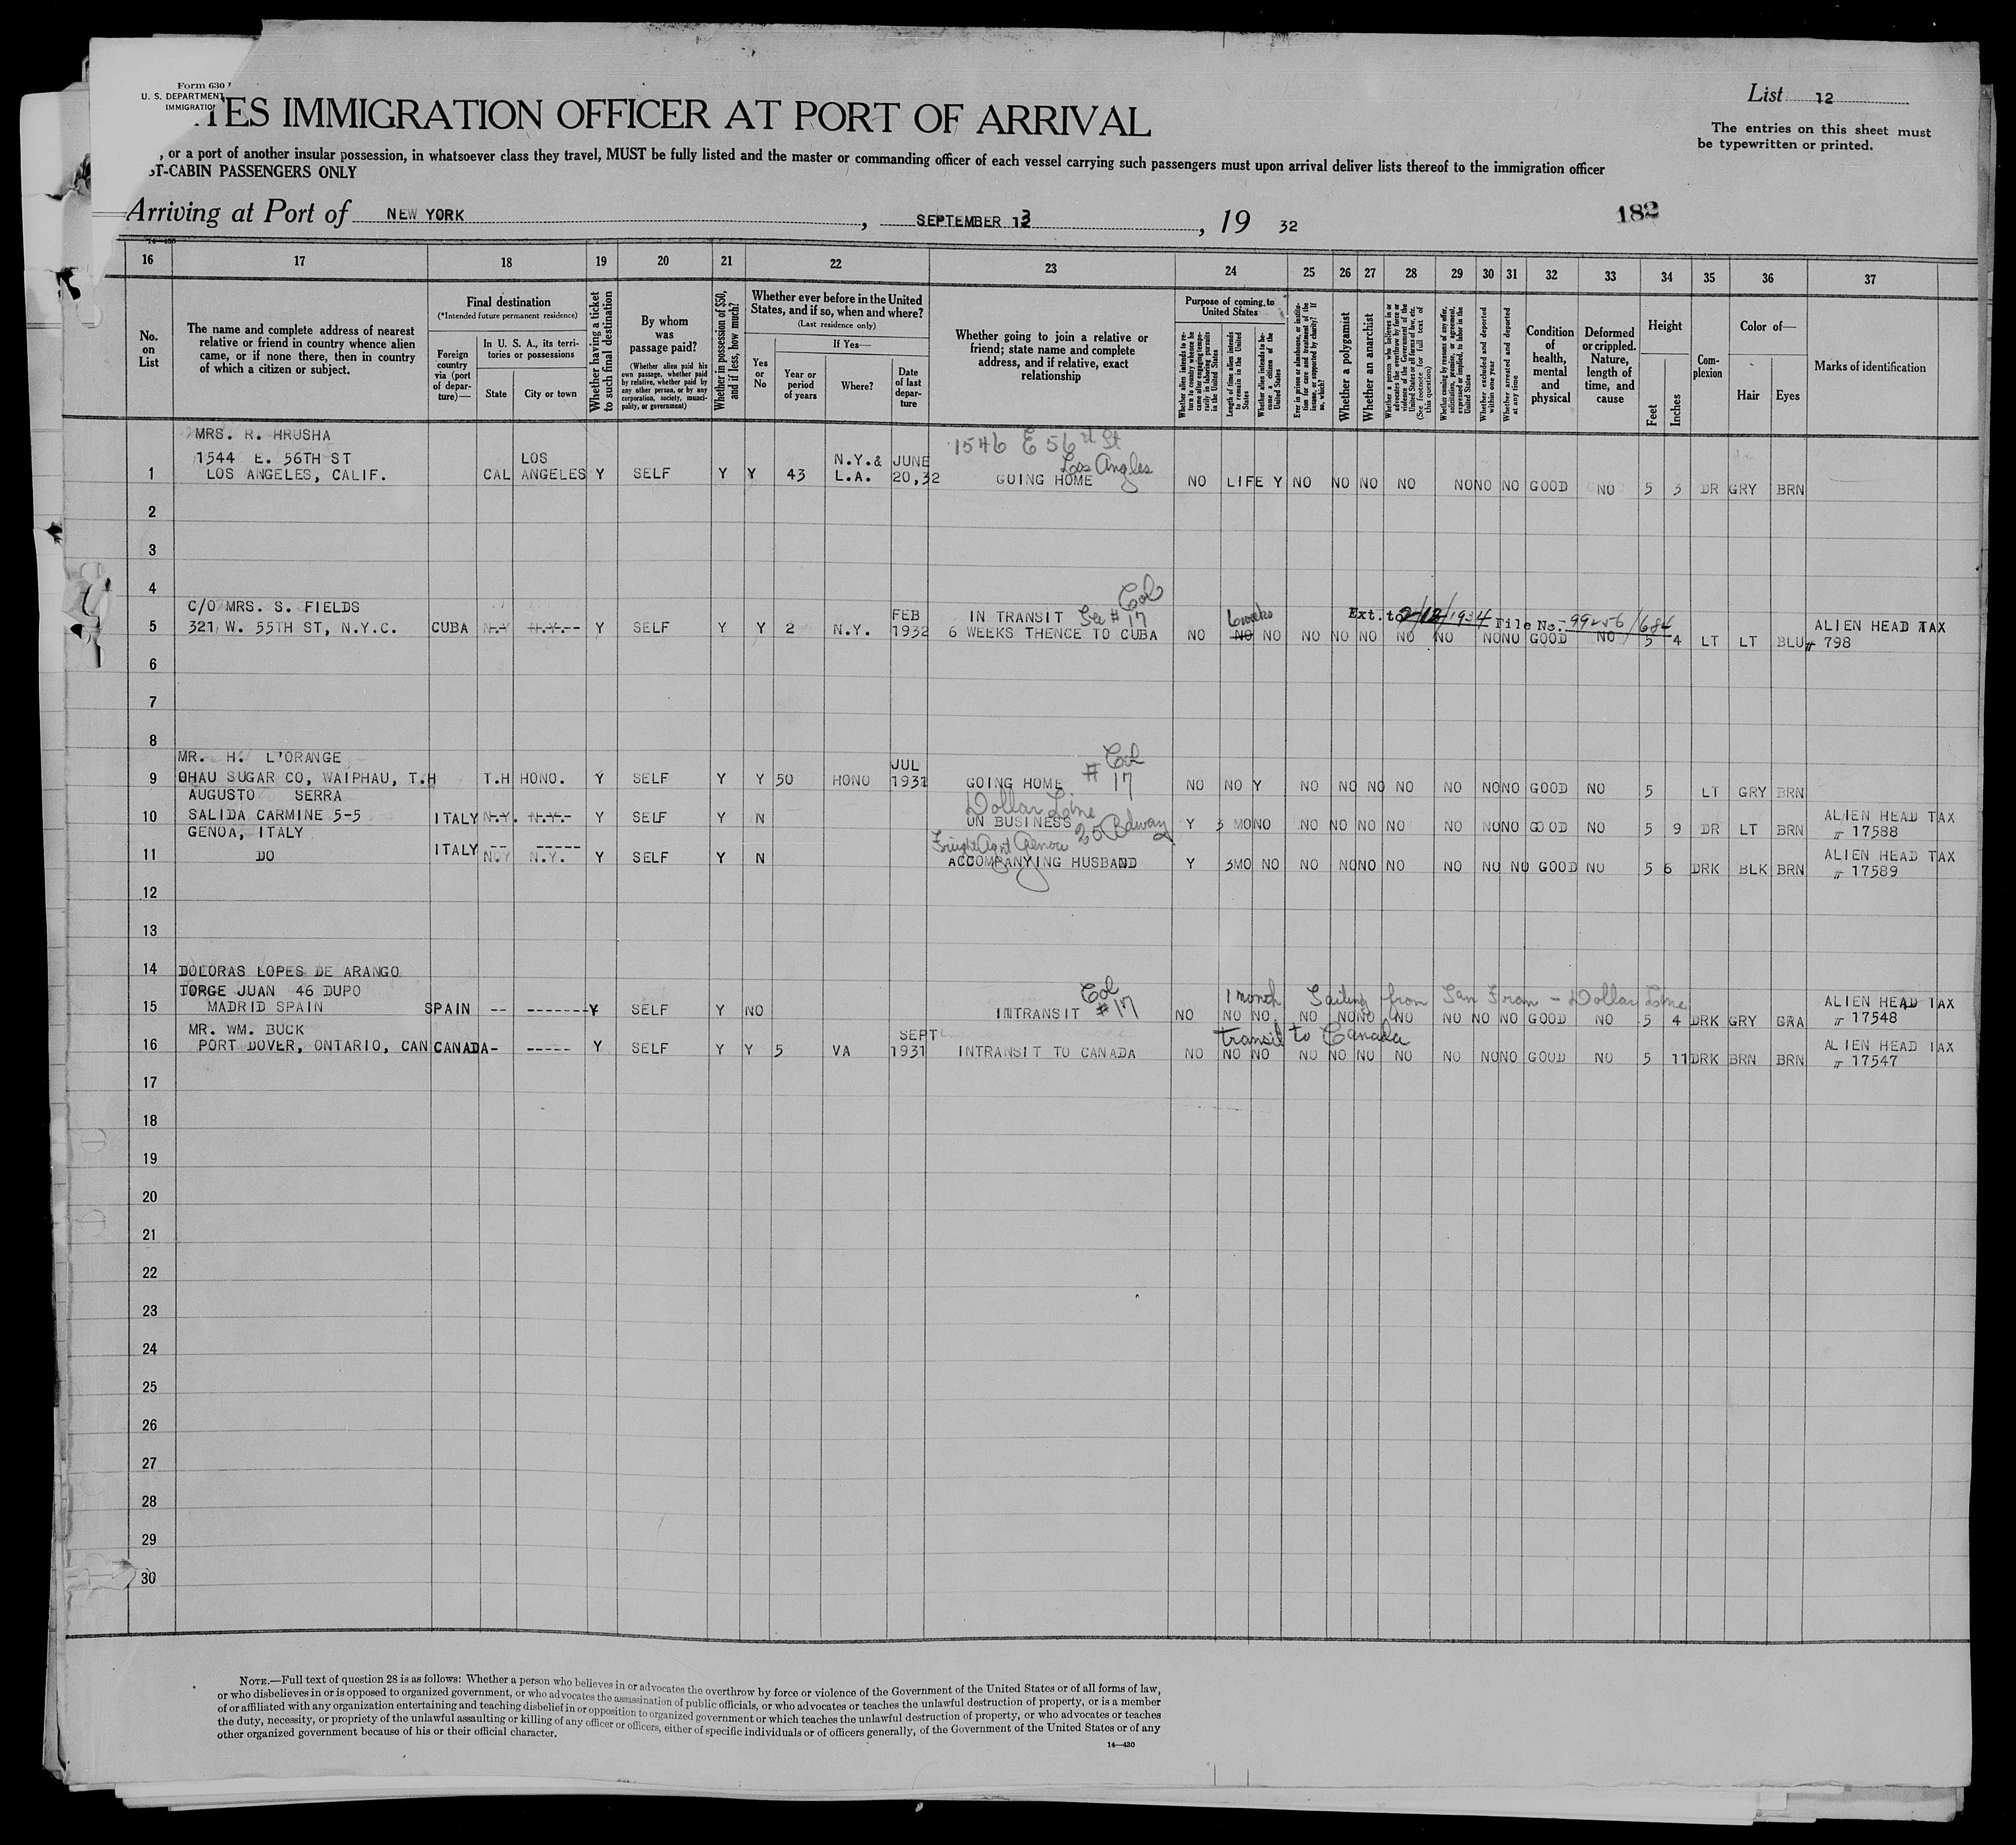 Form 630
U. S. DEPARTMENT
IMMIGRATION
TES IMMIGRATION OFFICER AT PORT OF ARRIVAL
List 12
The entries on this sheet must
be typewritten or printed.
, or a port of another insular possession, in whatsoever class they travel, MUST be fully listed and the master or commanding officer of each vessel carrying such passengers must upon arrival deliver lists thereof to the immigration officer
ST-CABIN PASSENGERS ONLY
Arriving at Port of NEW YORK, SEPTEMBER 13, 19 32
182
16 17 18 19 20 21 22 23 24 25 26 27 28 29 30 31 32 33 34 35 36 37
No. on List
The name and complete address of nearest relative or friend in country whence alien came, or if none there, then in country of which a citizen or subject.
Final destination
(*Intended future permanent residence)
Foreign country via (port of departure)—
In U. S. A., its territories or possessions
State
City or town
Whether having a ticket to such final destination
By whom was passage paid?
(Whether alien paid his own passage, whether paid by relative, whether paid by any other person, or by any corporation, society, municipality, or government)
Whether in possession of $50, and if less, how much?
Whether ever before in the United States, and if so, when and where?
(Last residence only)
Yes or No
If Yes—
Year or period of years
Where?
Date of last departure
Whether going to join a relative or friend; state name and complete address, and if relative, exact relationship
Purpose of coming to United States
Whether alien intends to return to country whence he came after engaging temporarily in laboring pursuits in the United States
Length of time alien intends to remain in the United States
Whether alien intends to become a citizen of the United States
Ever in prison or almshouse, or institution for care and treatment of the insane, or supported by charity? If so, which?
Whether a polygamist
Whether an anarchist
Whether a person who believes in or advocates the overthrow by force or violence of the Government of the United States or all forms of law, etc. (See footnote for full text of this question)
Whether coming by reason of any offer, solicitation, promise, or agreement, expressed or implied, to labor in the United States
Whether excluded and deported within one year
Whether arrested and deported at any time
Condition of health, mental and physical
Deformed or crippled. Nature, length of time, and cause
Height
Feet
Inches
Complexion
Color of—
Hair
Eyes
Marks of identification
MRS. R. HRUSHA 1546 E 56th St
1544 E. 56TH ST LOS N.Y.& JUNE Los Angles
1 LOS ANGELES, CALIF. CAL ANGELES Y SELF Y Y 43 L.A. 20,32 GOING HOME NO LIFE Y NO NO NO NO NO NO NO GOOD NO 5 3 DR GRY BRN
2
3
4
C/O MRS. S. FIELDS FEB IN TRANSIT See # 17 Col 6 weeks Ext. to 2/12/1934 File No. 99256/684 ALIEN HEAD TAX
5 321 W. 55TH ST, N.Y.C. CUBA N.Y N.Y.-- Y SELF Y Y 2 N.Y. 1932 6 WEEKS THENCE TO CUBA NO NO NO NO NO NO NO NO NO NO GOOD NO 5 4 LT LT BLU # 798
6
7
8
MR. H. L'ORANGE JUL Col
9 OHAU SUGAR CO, WAIPHAU, T.H T.H HONO. Y SELF Y Y 50 HONO 1931 GOING HOME # 17 NO NO Y NO NO NO NO NO NO NO GOOD NO 5 LT GRY BRN
AUGUSTO SERRA Dollar Line ALIEN HEAD TAX
10 SALIDA CARMINE 5-5 ITALY N.Y. N.Y.- Y SELF Y N ON BUSINESS 25 Bdway Y 3 MO NO NO NO NO NO NO NO NO GOOD NO 5 9 DR LT BRN # 17588
GENOA, ITALY Freight Agnt Genoa ALIEN HEAD TAX
11 DO ITALY N.Y N.Y. Y SELF Y N ACCOMPANYING HUSBAND Y 3MO NO NO NO NO NO NO NO NO GOOD NO 5 6 DRK BLK BRN # 17589
12
13
14 DOLORAS LOPES DE ARANGO
TORGE JUAN 46 DUPO Col 1 month Sailing from San Fran - Dollar Line ALIEN HEAD TAX
15 MADRID SPAIN SPAIN -- ------- Y SELF Y NO INTRANSIT # 17 NO NO NO NO NO NO NO NO NO NO GOOD NO 5 4 DRK GRY GRA # 17548
MR. WM. BUCK SEPT transit to Canada ALIEN HEAD TAX
16 PORT DOVER, ONTARIO, CAN CANADA- ----- Y SELF Y Y 5 VA 1931 INTRANSIT TO CANADA NO NO NO NO NO NO NO NO NO NO GOOD NO 5 11 DRK BRN BRN # 17547
17
18
19
20
21
22
23
24
25
26
27
28
29
30
NOTE.—Full text of question 28 is as follows: Whether a person who believes in or advocates the overthrow by force or violence of the Government of the United States or of all forms of law,
or who disbelieves in or is opposed to organized government, or who advocates the assassination of public officials, or who advocates or teaches the unlawful destruction of property, or is a member
of or affiliated with any organization entertaining and teaching disbelief in or opposition to organized government or which teaches the unlawful destruction of property, or who advocates or teaches
the duty, necessity, or propriety of the unlawful assaulting or killing of any officer or officers, either of specific individuals or of officers generally, of the Government of the United States or of any
other organized government because of his or their official character.
14—430